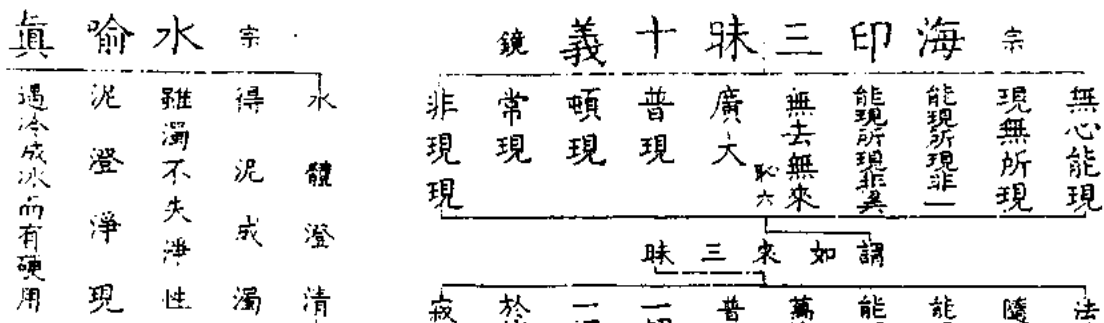 宗
海印三昧十義
鏡
無心能現
現無所現
能現所現非一
能現所現非異
無去無來
恥六
廣大
普現
頓現
常現
非現現
謂如來三昧
法
隨
能
能
萬
普
一
一
於
寂
宗
水喻眞
水體澄清
得泥成濁
雖濁不失淨性
泥澄淨現
遇冷成冰而有硬用